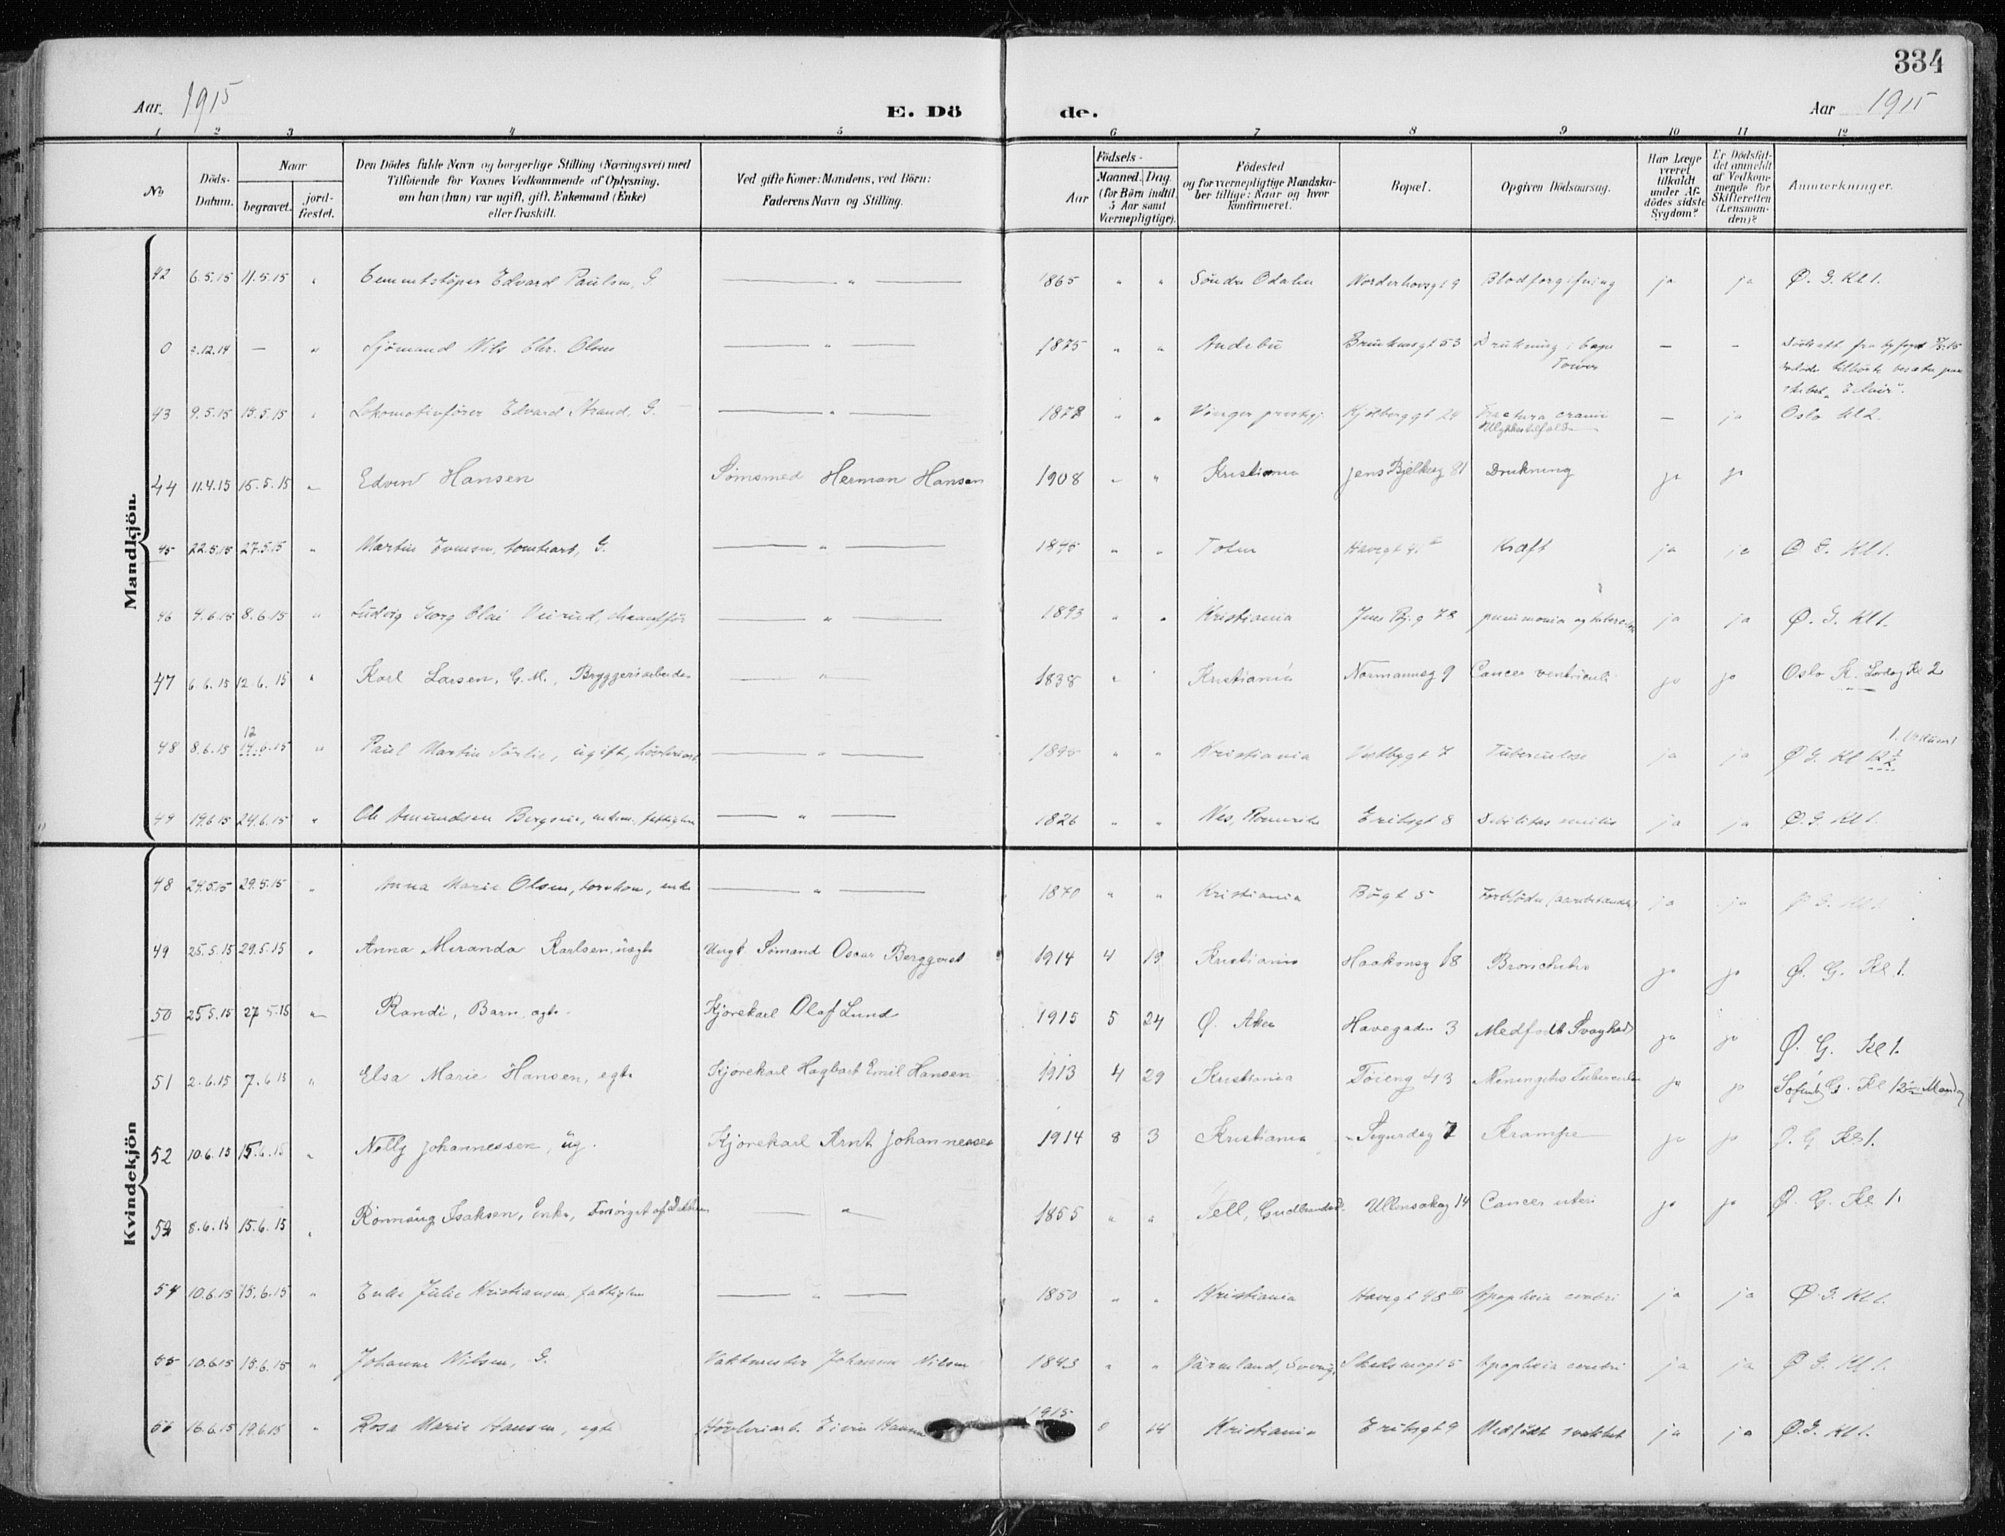 334
Aar 1915
E. Dö
de.
Aar 1915
1 2 3 4 5 6 7 8 9 10 11 12
No
Döds-
Datum.
Naar
begravet.
jord-
fæstet.
Den Dödes fulde Navn og borgerlige Stilling (Næringsvei) med
Tilföiende for Voxnes Vedkommende af Oplysning,
om han (hun) var ugift, gift, Enkemand (Enke)
eller fraskilt.
Ved gifte Koner: Mandens, ved Börn:
Faderens Navn og Stilling.
Födsels-
Aar
Maaned. Dag.
(for Börn indtil
5 Aar samt
Værnepligtige).
Födested
og for værnepligtige Mandska-
ber tillige: Naar og hvor
konfirmeret.
Bopæl.
Opgiven Dödsaarsag.
Har Læge
været
tilkaldt
under Af-
dödes sidste
Sygdom?
Er Dödsfal-
det anmeldt
af Vedkom-
mende for
Skifteretten
(Lensman-
den)?
Anmærkninger.
Mandkjön.
42 6.5.15 11.5.15 " Cementstöper Edvard Paulsen, G. — " — 1865 " " Söndre Odalen Norderhovsgt 9 Blodforgiftning ja ja Ø. G. Kl 1.
0 2.12.14 — " Sjömand Nils Chr. Olsen — " — 1875 " " Andebu Brinkensgt 53 Drukning — —
43 9.5.15 15.5.15 " Lokomotivförer Edvard Strand, G. — " — 1878 " " Vinger Kjölberggt 24 Fractura cranii — ja Oslo kl 2.
Ulykkestilfælde
44 11.4.15 15.5.15 " Edvin Hansen Sømsmed Herman Hansen 1908 " " Kristiania Jens Bjelkesg 81 Drukning ja ja
45 22.5.15 27.5.15 " Martin Evensen, G. — " — 1875 " " Toten Havegt Kræft ja ja Ø G. Kl 1.
46 4.6.15 8.6.15 " Ludvig Georg Olai — " — 1893 " " Kristiania Jens Bj. g 72 pneumonia og ja ja Ø. G. Kl 1.
47 6 6.15 12 6.15 " Karl Larsen, G. M., Bryggeriarbeider — " — 1838 " " Kristiania Normannsg 9 Cancer ventriculi ja ja Oslo K. Lørdag Kl 2
12
48 8.6.15 14.6.15 " Paul Martin Sörlie, ugift, — " — " " Kristiania Vestbygt 7 Tuberculose ja ja Ø G. Kl 12½
49 19.6.15 24.6.15 " Ole Amundsen — " — 1826 " " Nes, Romerike Eriksgt 8 Debilitas senilis ja ja Ø. G. Kl 1.
Kvindekjön
48 24.5.15 29.5.15 " Anna Marie Olsen, enke — " — 1870 " " Kristiania Bögt 5 ja ja Ø G. Kl 1.
49 25.5.15 29.5.15 " Anna Miranda Karlsen, uægte Ungk. Sømand Oscar Bergqvist 1914 4 19 Kristiania Haakonsg 18 Bronchitis ja ja Ø. G. Kl 1.
50 25.5.15 27 5.15 " Randi, Barn, ægte. Kjørekarl Olaf Lund 1915 5 24 Ø. Aker Havegaden 3 Medfødt Svaghed ja ja Ø. G. Kl 1.
51 2.6.15 7.6 15 " Elsa Marie Hansen, egte Kjørekarl Hagbart Emil Hansen 1913 4 29 Kristiania Tøieng 43 Meningitis Tuberculøs ja ja Sofienbg G. Kl 12 Mandag
52 10.6.15 15.6.15 " Nelly Johannessen, ug. Kjørekarl Arnt Johannessen 1914 8 3 Kristiania Sigurdsg 7 Krampe ja ja Ø. G. Kl 1.
53 8.6.15 15.6.15 " Rønnaug Isaksen, Enke, Forsørget af — " 1855 " " Sell, Gudbrandsd. Ullensakerg 14 Cancer uteri ja ja Ø. G. Kl 1.
54 10.6.15 15.6.15 " Enke Julie Kristiansen, fattiglem — " — 1850 " " Kristiania Havegt 48 Apoplexia cerebri ja ja Ø. G. Kl 1.
55 10.6.15 15.6.15 " Johanne Nilsen, G. Vaktmester Johannes Nilsen 1843 " " Värmland, Sverige Skedsmogt 5 Apoplexia cerebri ja ja Ø G. Kl 1.
56 16.6.15 19.6.15 " Rosa Marie Hansen, egte Høvleriarb. 1915 14 Kristiania Eriksgt 9 Medfödt svakhet ja ja Ø.G. Kl 1.